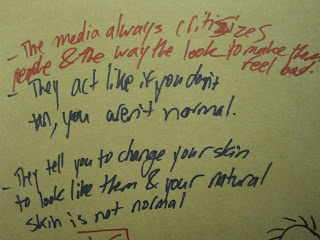 - The media always critisizes
people & the way the look to make them
feel bad.
- They act like if you don't
tan, you aren't normal.
- They tell you to change your skin
to look like them & your natural
skin is not normal